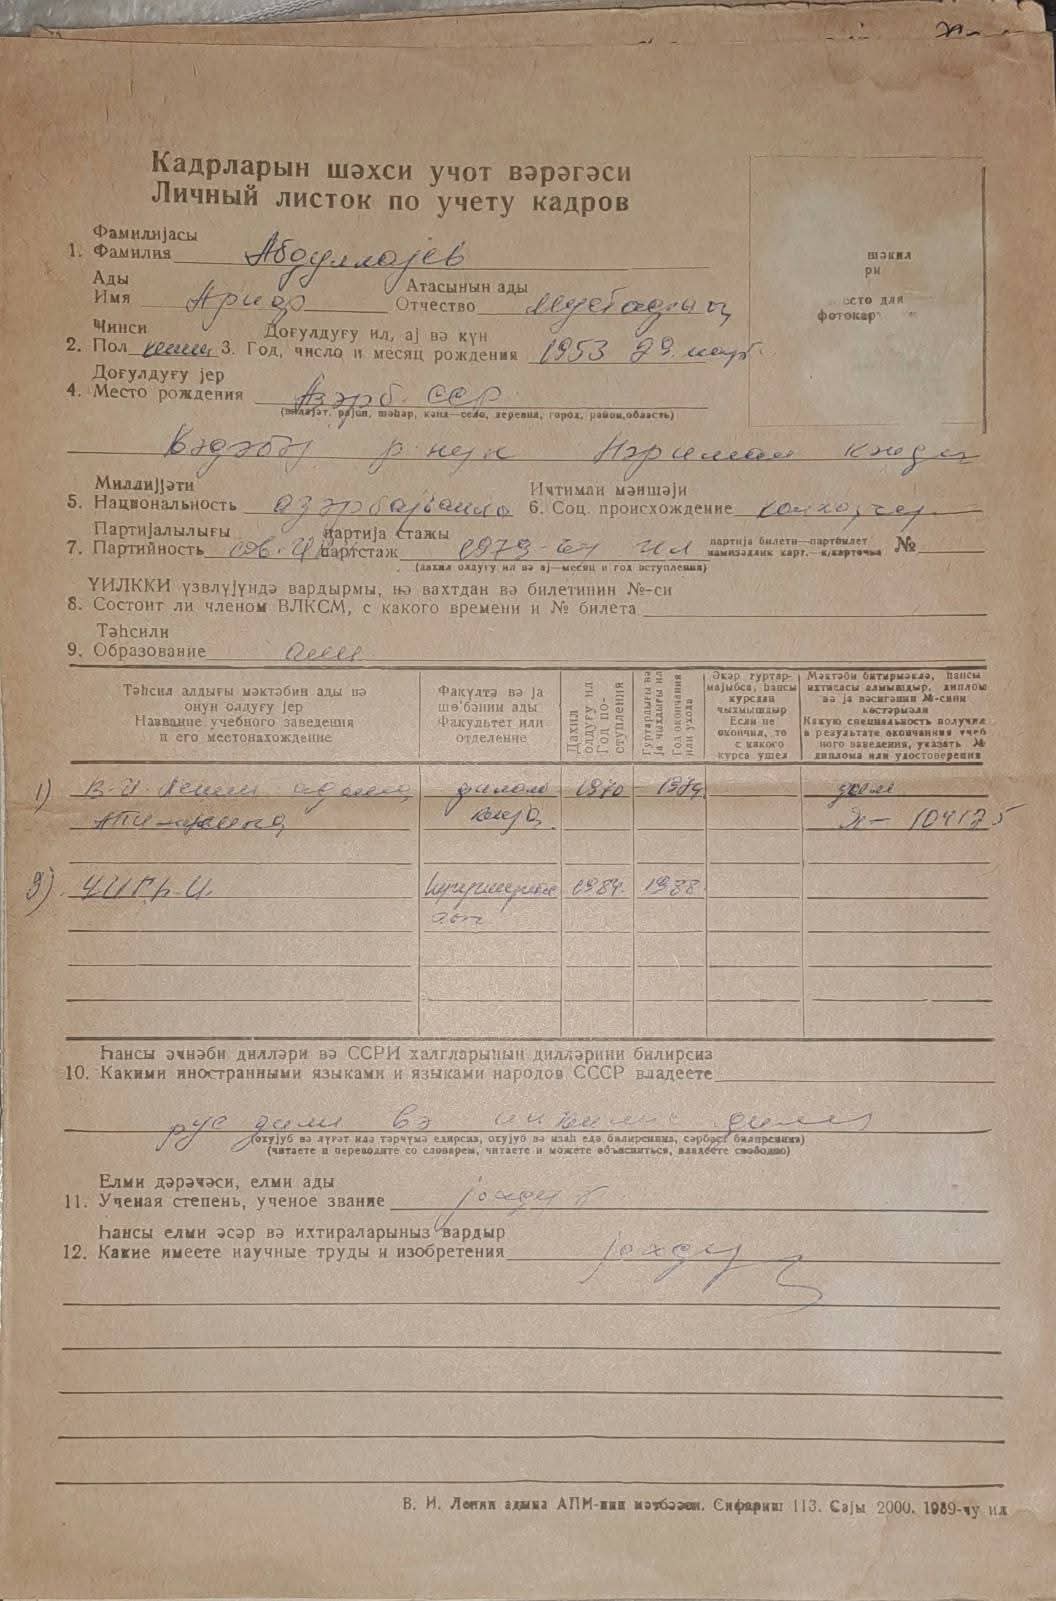 Кадрларын шәхси учот вәрәгәси
Личный листок по учету кадров
шәкил
ри
есто для
фотокар
Фамилијасы
1. Фамилия Абдуллајев
Ады Атасынын ады
Имя Отчество
Чинси Доғулдуғу ил, ај вә күн
2. Пол киши 3. Год, число и месяц рождения 1953 29. март.
Доғулдуғу јер
4. Место рождения Азәрб. ССР
(вилајәт, рајон, шәһәр, кәнд—село, деревня, город, район, область)
Кәдәбәј р-нун Нәриман кәнди
Миллијјәти Ичтимаи мәншәји
5. Национальность азәрбајҹанлы 6. Соц. происхождение колхозчу
Партијалылығы партија стажы партија билети—партбилет
7. Партийность Сов. партстаж 1979-ҹи ил намизәдлик карт.—к/карточка №
(дахил олдуғу ил вә ај—месяц и год вступления)
ҮИЛККИ үзвлүјүндә вардырмы, нә вахтдан вә билетинин №-си
8. Состоит ли членом ВЛКСМ, с какого времени и № билета
Тәһсили
9. Образование али
Тәһсил алдығы мәктәбин ады вә онун олдуғу јер Название учебного заведения и его местонахождение
Факүлтә вә ја шө'бәнин ады Факультет или отделение
Дахил олдуғу ил Год поступления
Гуртардығы вә ја чыхдығы ил Год окончания или ухода
Әкәр гуртармајыбса, һансы курсдан чыхмышдыр Если не окончил, то с какого курса ушел
Мәктәби битирмәклә, һансы ихтисасы алмышдыр, диплом вә ја вәсигәнин №-сини көстәрмәли Какую специальность получил в результате окончания учебного заведения, указать № диплома или удостоверения
1) В. И. Ленин адына филоло 1970 1974
АПИ- 104175
2) 1984. 1988.
Һансы әҹнәби дилләри вә ССРИ халгларынын дилләрини билирсиз
10. Какими иностранными языками и языками народов СССР владеете
рус дили вә инкилис дили
(охујуб вә лүғәт илә тәрҹүмә едирсиз, охујуб вә изаһ едә билирсиниз, сәрбәст билирсиниз)
(читаете и переводите со словарем, читаете и можете объясниться, владеете свободно)
Елми дәрәҹәси, елми ады
11. Ученая степень, ученое звание јохдур
Һансы елми әсәр вә ихтираларыныз вардыр
12. Какие имеете научные труды и изобретения јохдур
В. И. Ленин адына АПИ-нин мәтбәәси. Сифариш 113. Сајы 2000. 1989-чу ил